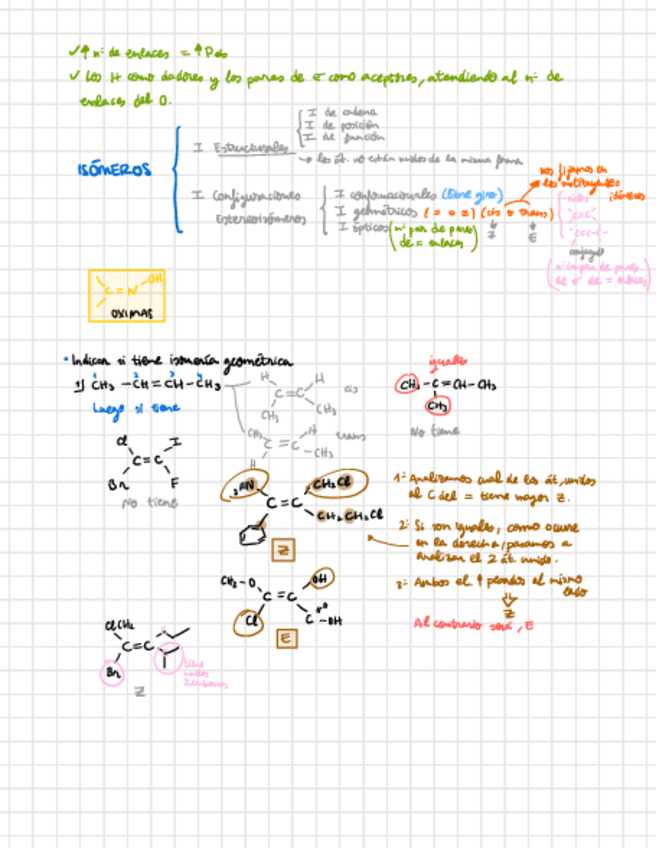 ✓ ↑ nº de enlaces = ↑ Peb
✓ Los H como dadores y los pares de e⁻ como aceptores, atendiendo al nº de
enlaces del O.
ISÓMEROS
I Estructurales
I de cadena
I de posición
I de función
→ los át. no están unidos de la misma forma
I Configuraciones
Estereoisómeros
I conformacionales (tiene giro)
I geométricos (= o ≡) (cis o trans)
Z E
I ópticos (nº par de pares
de = enlaces)
nos fijamos en
los sustituyentes
idénticos
(nº impar de pares
de = enlaces)
C=N-OH
OXIMAS
• Indicar si tiene isomería geométrica
1) CH₃ -CH=CH-CH₃
1 2 3 4
Luego si tiene
H H
C=C
CH₃ CH₃
cis
CH₃ H
C=C
H CH₃
trans
iguales
CH₃-C=CH-CH₃
CH₃
No tiene
Cl I
C=C
Br F
No tiene
₂HN CH₂Cl
C=C
CH₂CH₂Cl
Z
1º Analizamos cual de los át. unidos
al C del = tiene mayor Z.
2º Si son iguales, como ocurre
en la derecha, pasamos a
analizar el 2 át. unido.
3º Ambos el ↑ pesados al mismo
lado
Z
Al contrario será, E
CH₃-O OH
C=C
Cl C-OH
E
ClCH₂
C=C
Br
Z